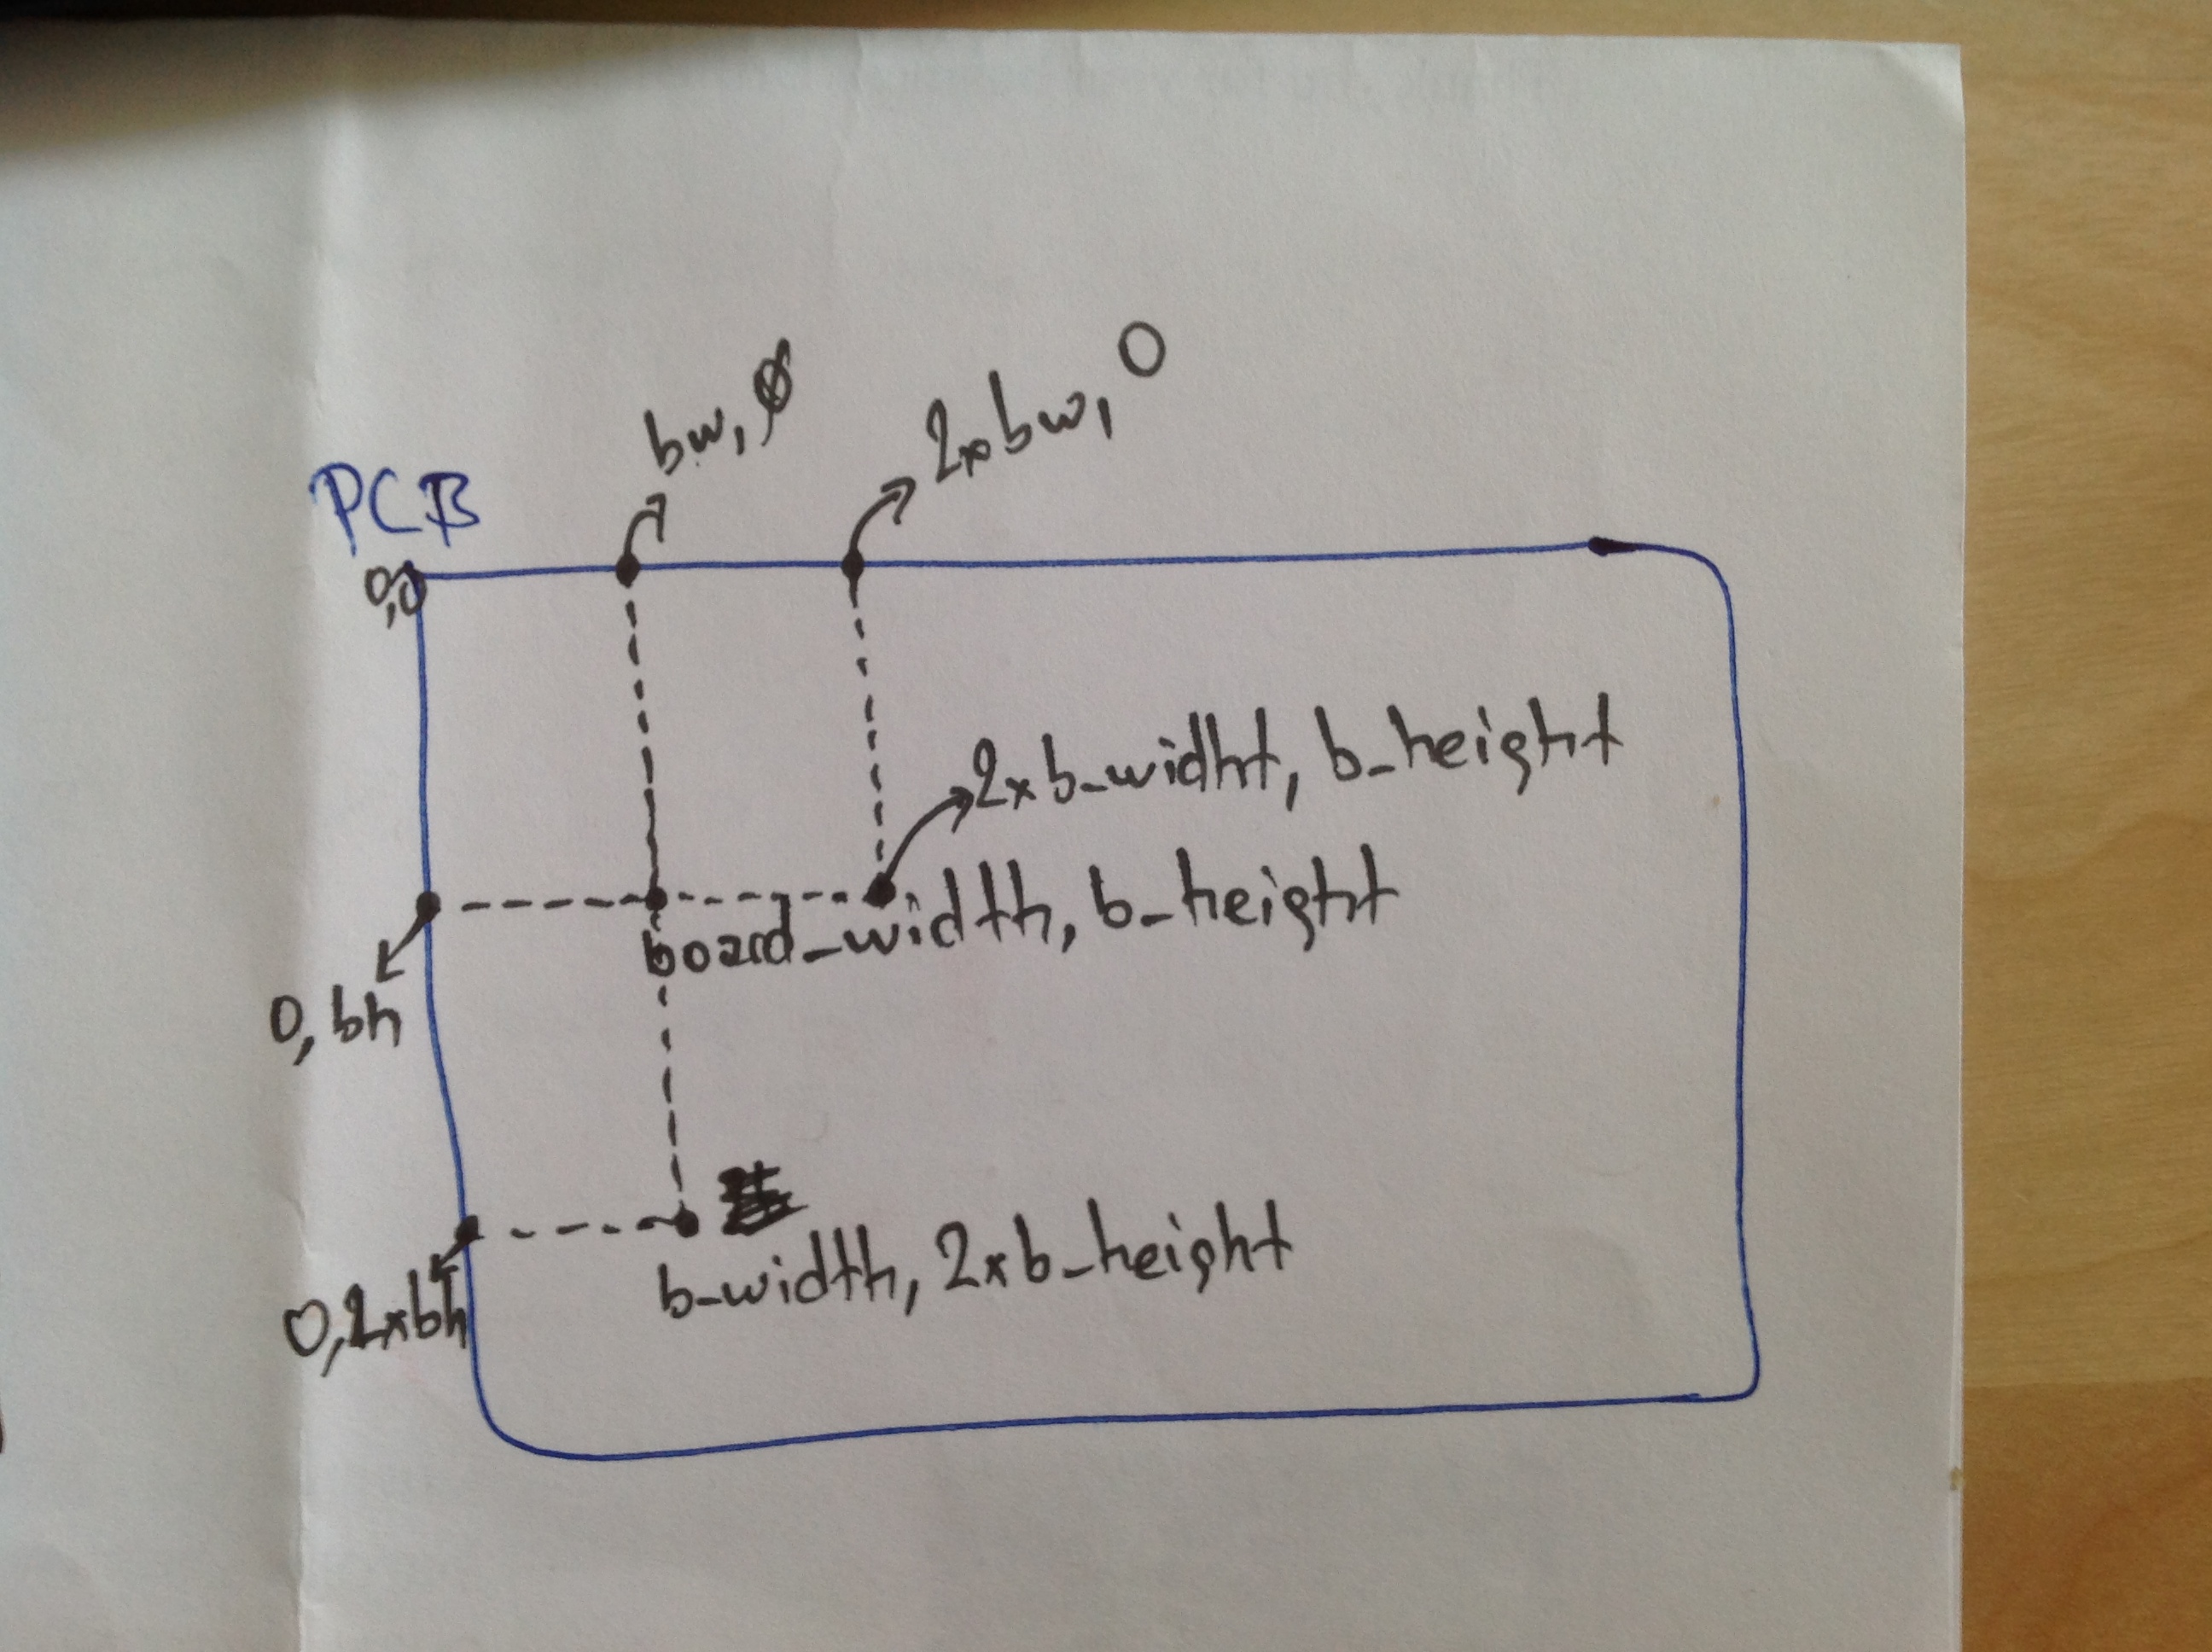 bw, 0
2xbw, 0
PCB
0,0
2xb-widht, b-height
board_width, b-height
0, bh
b-width, 2xb-height
0,2xbh